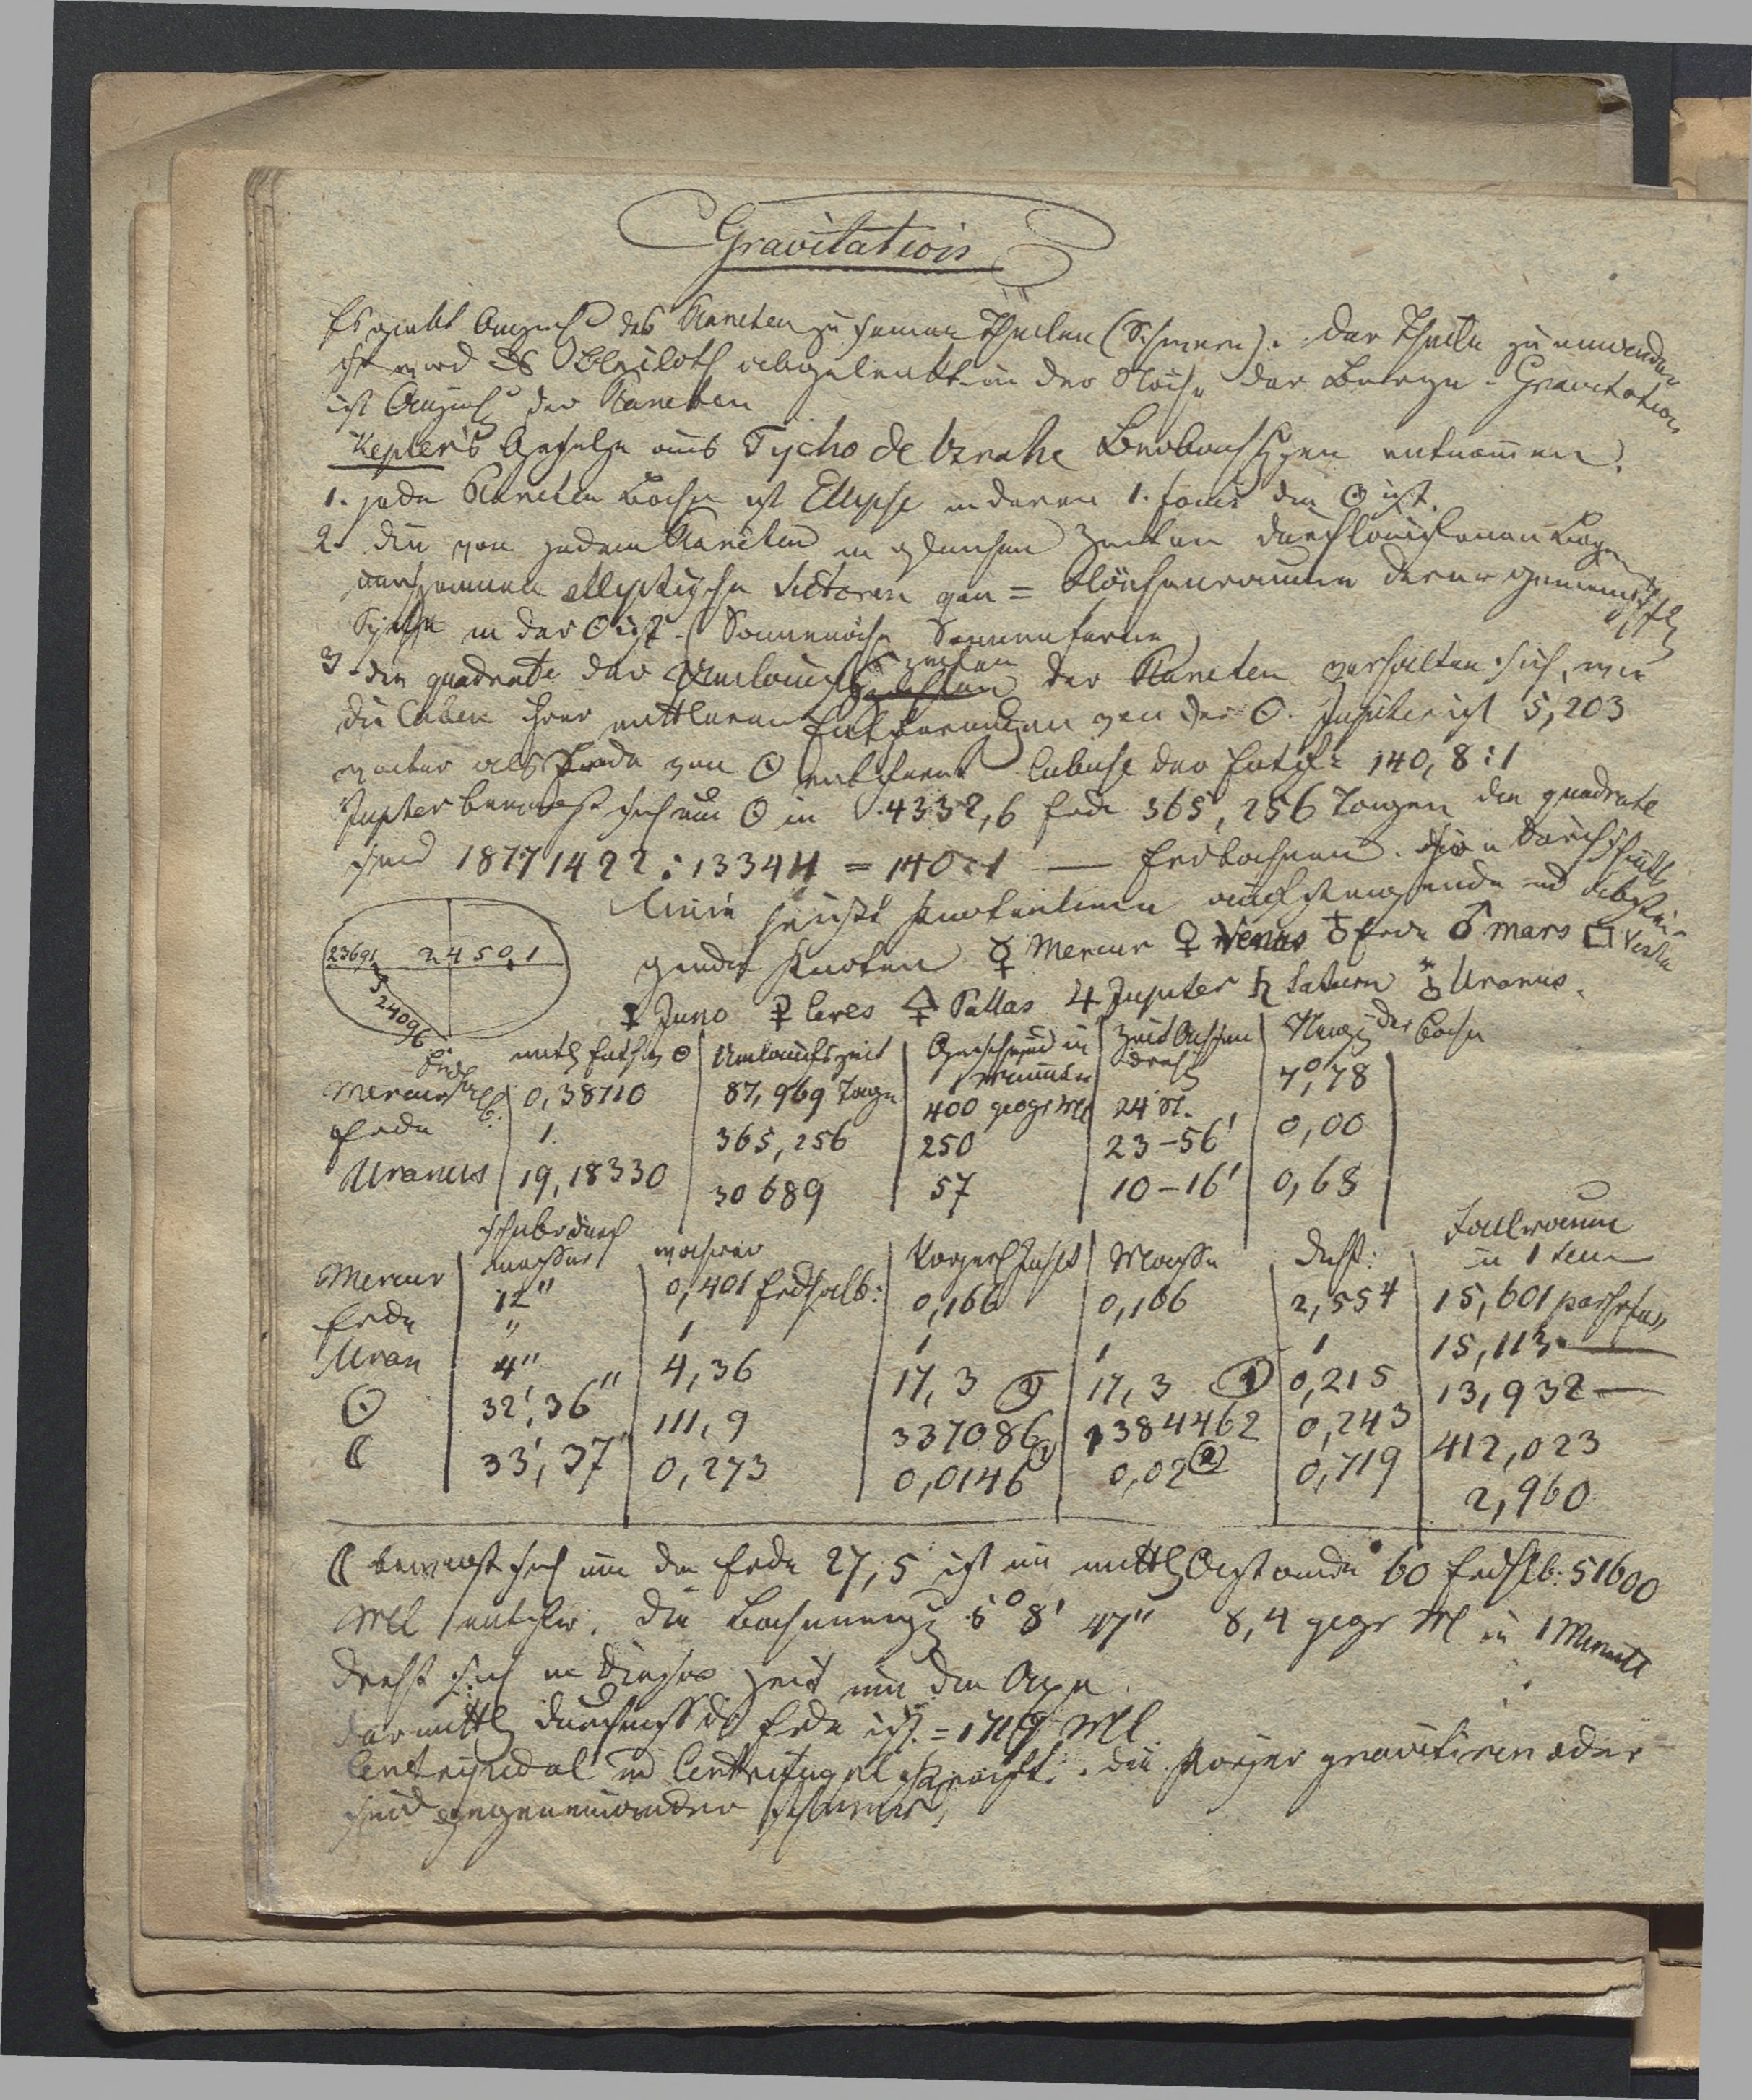 Gravitation
Es giebt Anzieh des Planeten zu seinen Theilen (Schwere). der Theile zu einander
so wird das Bleiloth abgelenkt in der Nähe der Berge - Gravitation
ist Anzieh der Planeten
Kepler's Gesetze aus Tycho de brahe Beobachtgen entnommen.
1. jede Planeten Bahn ist Ellipse in deren 1. focus die ☉ ist.
2. die von jedem Planeten in gleichen Zeiten durchlaufenen Bogen
elliptische Sectoren von = Flächenraume deren gemeinschftl
Spitze in der ☉ ist - (Sonnennähe Sonnenferne
3. die quadrate der Umlaufszeiten der Planeten verhalten sich, wie
die Cuben ihrer mittleren Entfernungen von der ☉. Jupiter ist 5,203
weiter als Erde von ☉ entfernt Cubus der Entf= 140,8:1
Jupiter bewegt sich um ☉ in 4332,6 Erde 365,256 Tagen die quadrate
sind 18771422:13344 = 140:1 — Erdbahnen. Durchschnitts
linie heißt Knotenlinie aufsteigende und abstei-
gende Knoten ☿ Mercur ♀ Venus ♁ Erde ♂ mars Vesta
Juno Ceres Pallas ♃ Jupiter ♄ Saturn Uranus.
23691 24501
24096
mittl Entf v ☉ | Umlaufszeit | Geschwind in 1 minute | Zeit Achsen dreh | Neig der Bahn
Mercur | 0,38710 | 87,969 Tage | 400 geogr Ml | 24 St. | 7°,78
Erde | 1. | 365,256 | 250 | 23-56' | 0,00
Uranus | 19,18330 | 30689 | 57 | 10-16' | 0,68
scheinb durchmesser | wahrer | Körperl Inhalt | Masse | Dicht: | Fallraum in 1 Secu
Mercur | 12" | 0,401 Erdhalb: | 0,166 | 0,166 | 2,554 | 15,601 parisfus
Erde | " | 1 | 1 | 1 | 1 | 15,113 —
Uran | 4" | 4,36 | 17,3 | 17,3 | 0,215 | 13,932 —
☉ | 32',36" | 111,9 | 337086 | 1384462 | 0,243 | 412,023
☾ | 33',37" | 0,273 | 0,0146 | 0,02 | 0,719 | 2,960
☾ bewegt sich um die Erde 27,5 ist im mittl Abstande 60 Erdhlb: 51600
Ml entfer. die Bahnneig 5° 8' 47" 8,4 geogr Ml in 1 Minute
dreht sich in dieser Zeit um die Axe.
der mittl Durchmess der Erde ist = 1719 Ml
Centripetal und Centrifugal Kraft. die Körper gravitiren oder
sind gegeneinander schwer.